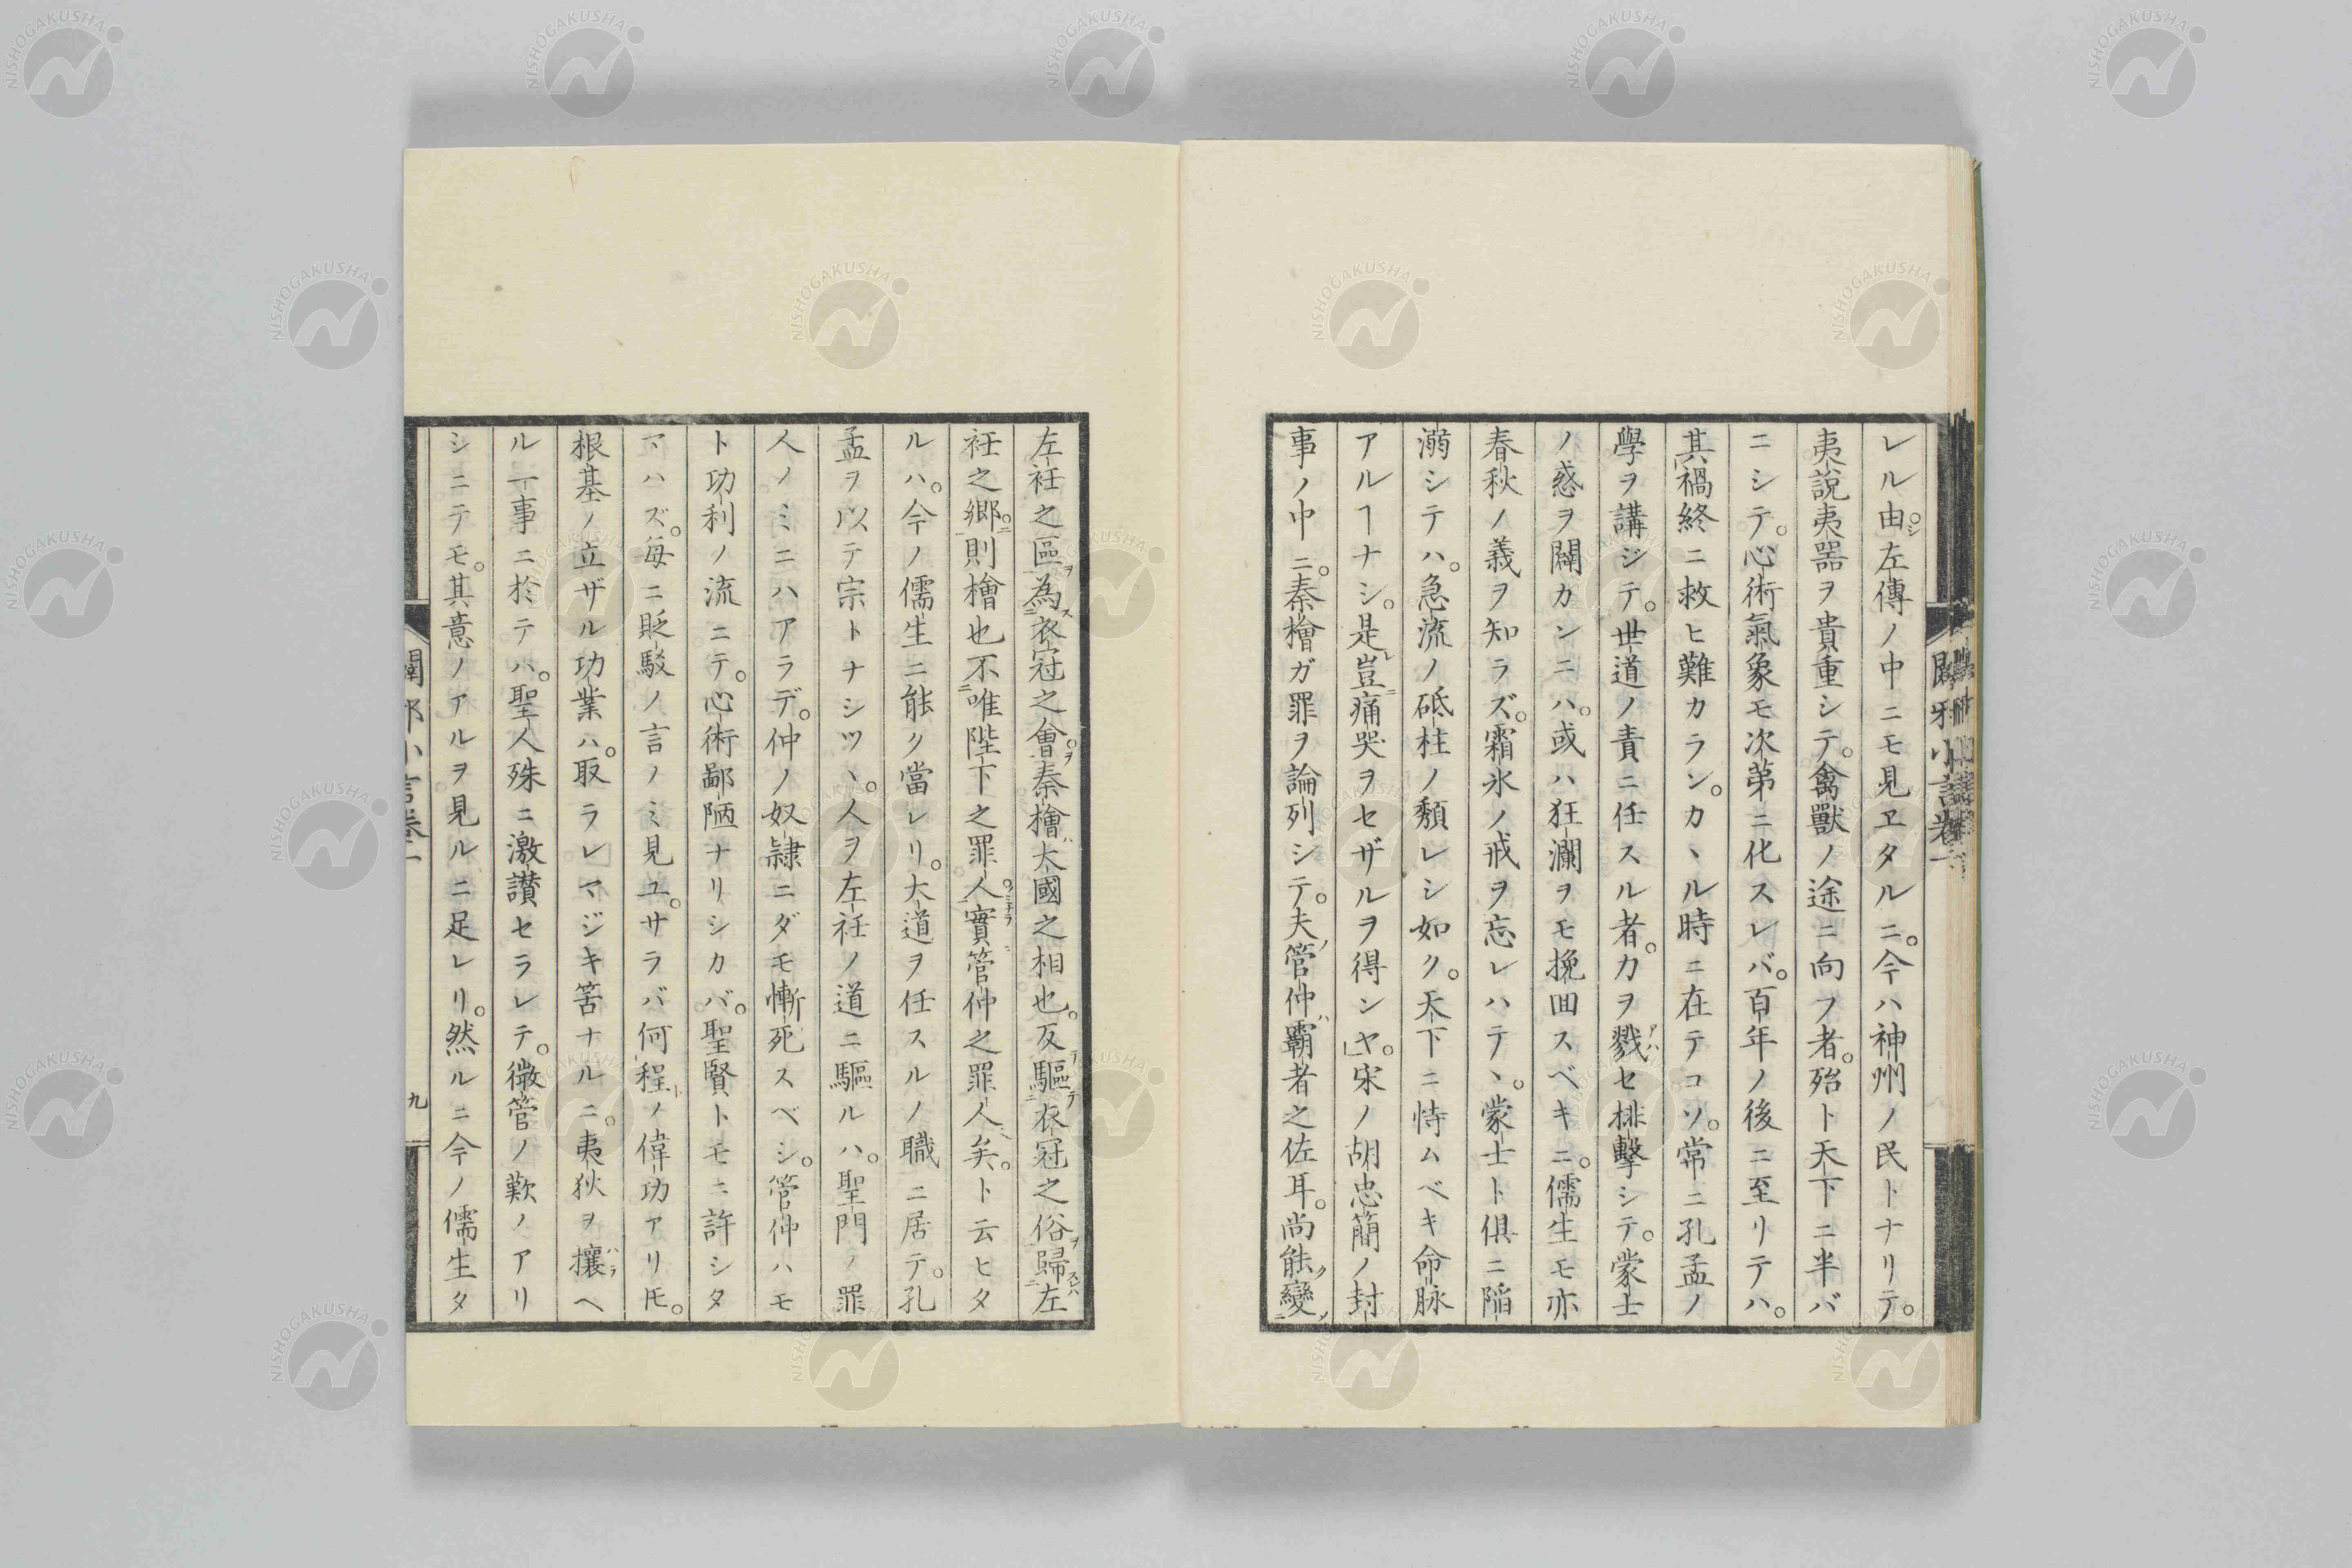 レル由シ。左傳ノ中ニモ見ヱタルニ。今ハ神州ノ民トナリテ。
夷說夷器ヲ貴重シテ。禽獸ノ途ニ向フ者。殆ト天下ニ半バ
ニシテ。心術氣象モ次第ニ化スレバ。百年ノ後ニ至リテハ。
其禍終ニ救ヒ難カラン。カヽル時ニ在テコソ。常ニ孔孟ノ
學ヲ講ジテ。世道ノ責ニ任スル者。力ヲ戮アハセ排擊シテ。蒙士
ノ惑ヲ闢カンニハ。或ハ狂瀾ヲモ挽回スベキニ。儒生モ亦
春秋ノ義ヲ知ラズ。霜氷ノ戒ヲ忘レハテヽ。蒙士ト俱ニ陷
溺シテハ。急流ノ砥柱ノ頽レシ如ク。天下ニ恃ムベキ命脉
アルヿナシ。是レ豈ニ痛哭ヲセザルヲ得ンヤ。宋ノ胡忠簡ノ封
事ノ中ニ。秦檜ガ罪ヲ論列シテ。夫ノ管仲ハ霸者之佐耳。尚能ク變ノ
左衽之區ヲ為ス衣冠之會ヲ。秦檜ハ大國之相也。反テ驅テ衣冠之俗ヲ歸スレハ左
衽之鄉ニ。則檜也不唯陛下之罪人ノミナラ。實ニ管仲之罪人矣。ト云ヒタ
ルハ。今ノ儒生ニ能ク當レリ。大道ヲ任スルノ職ニ居テ。孔
孟ヲ以テ宗トナシツヽ。人ヲ左衽ノ道ニ驅ルハ。聖門ノ罪
人ノミニハアラデ。仲ノ奴隸ニダモ慚死スベシ。管仲ハモ
ト功利ノ流ニテ。心術鄙陋ナリシカバ。聖賢トモニ許シタ
マハズ。每ニ貶駁ノ言ノミ見ユ。サラバ何程ノ偉功アリ𪜈。
根基ノ立ザル功業ハ。取ラレマジキ筈ナルニ。夷狄ヲ攘ハラヘ
ル一事ニ於テハ。聖人殊ニ激讃セラレテ。微管ノ歎ノアリ
シニテモ。其意ノアルヲ見ルニ足レリ。然ルニ今ノ儒生タ
九